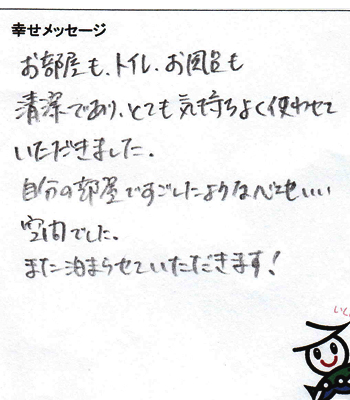 幸せメッセージ
お部屋も、トイレ、お風呂も
清潔であり、とても気持ちよく使わせて
いただきました。
自分の部屋ですごしたような とてもいい
空間でした。
また泊まらせていただきます!